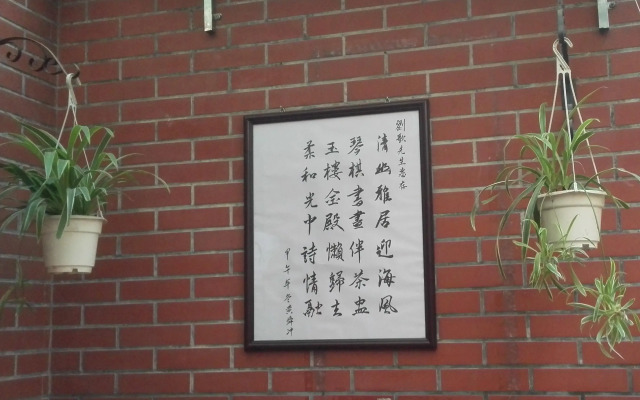 劉歌先生惠存
清幽雅居迎海風
琴棋書畫伴茶盅
玉樓金殿懶歸去
柔和光中詩情融
甲午年冬